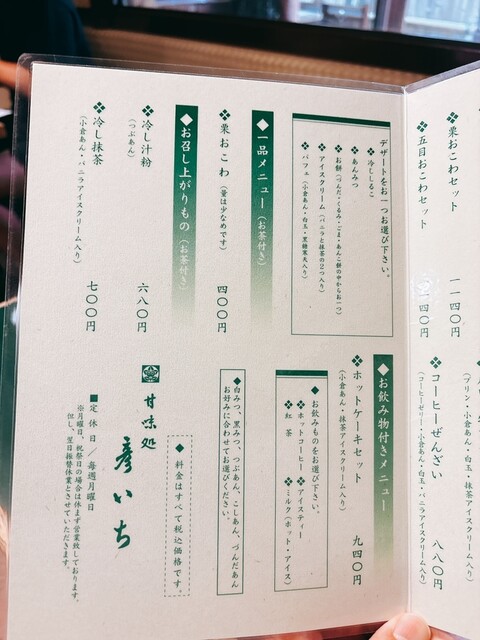 ❖栗おこわセット 一一四〇円
❖五目おこわセット 一一四〇円
デザートをお一つお選び下さい。
❖冷ししるこ
❖あんみつ
❖お餅(づんだ・くるみ・ごま・あんこ餅の中からお一つ)
❖アイスクリーム(バニラと抹茶の2つ入り)
❖パフェ(小倉あん・白玉・黒糖寒天入り)
◆一品メニュー(お茶付き)
❖栗おこわ(量は少なめです) 四〇〇円
◆お召し上がりもの(お茶付き)
❖冷し汁粉 六八〇円
(つぶあん)
❖冷し抹茶 七〇〇円
(小倉あん・バニラアイスクリーム入り)
(プリン・小倉あん・白玉・抹茶アイスクリーム入り)
❖コーヒーぜんざい 八八〇円
(コーヒーゼリー・小倉あん・白玉・バニラアイスクリーム入り)
◆お飲み物付きメニュー
❖ホットケーキセット 九四〇円
(小倉あん・抹茶アイスクリーム入り)
◆お飲みものをお選び下さい。
❖ホットコーヒー ❖アイスティー
❖紅茶 ❖ミルク(ホット・アイス)
◆白みつ、黒みつ、つぶあん、こしあん、づんだあん
お好みに合わせてお選びください。
◆料金はすべて税込価格です。
甘味処 彦いち
■定休日/毎週月曜日
※月曜日、祝祭日の場合は休まず営業致しております。
但し、翌日振替休業とさせていただきます。